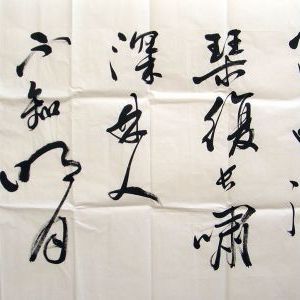 琴復长嘯
深林人
不知明月